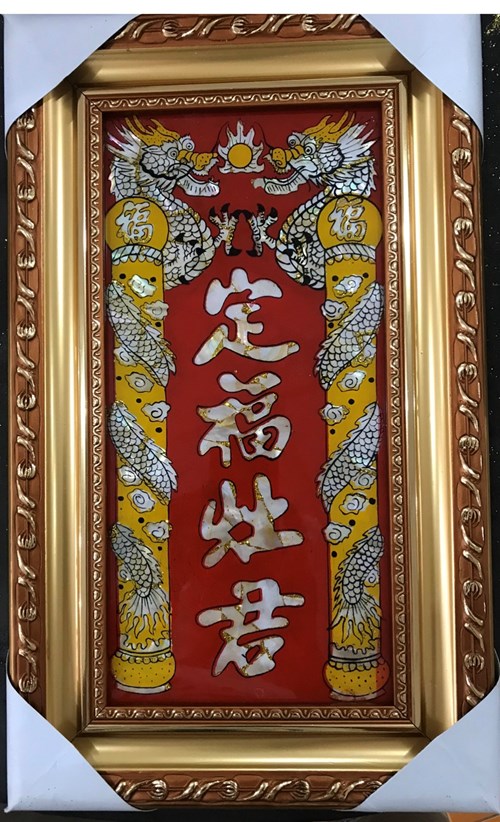 福
福
定福灶君